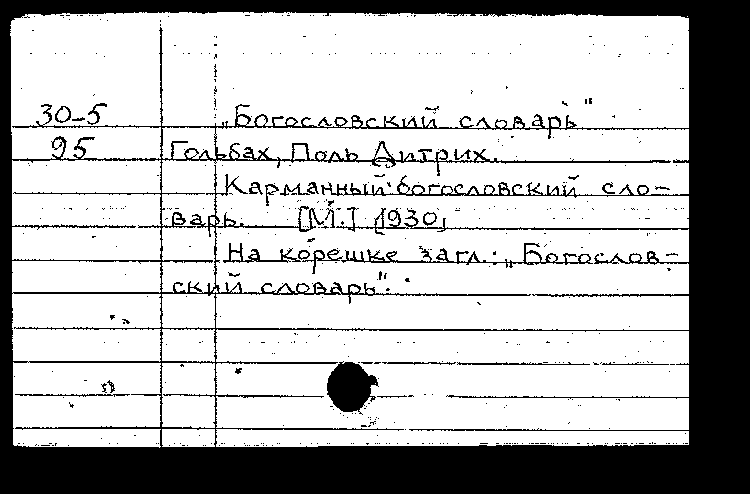 30-5 „Богословский словарь"
95 Гольбах, Поль Дитрих.
Карманный богословский сло-
варь. [М.] [1930]
На корешке загл.: „Богослов-
ский словарь".